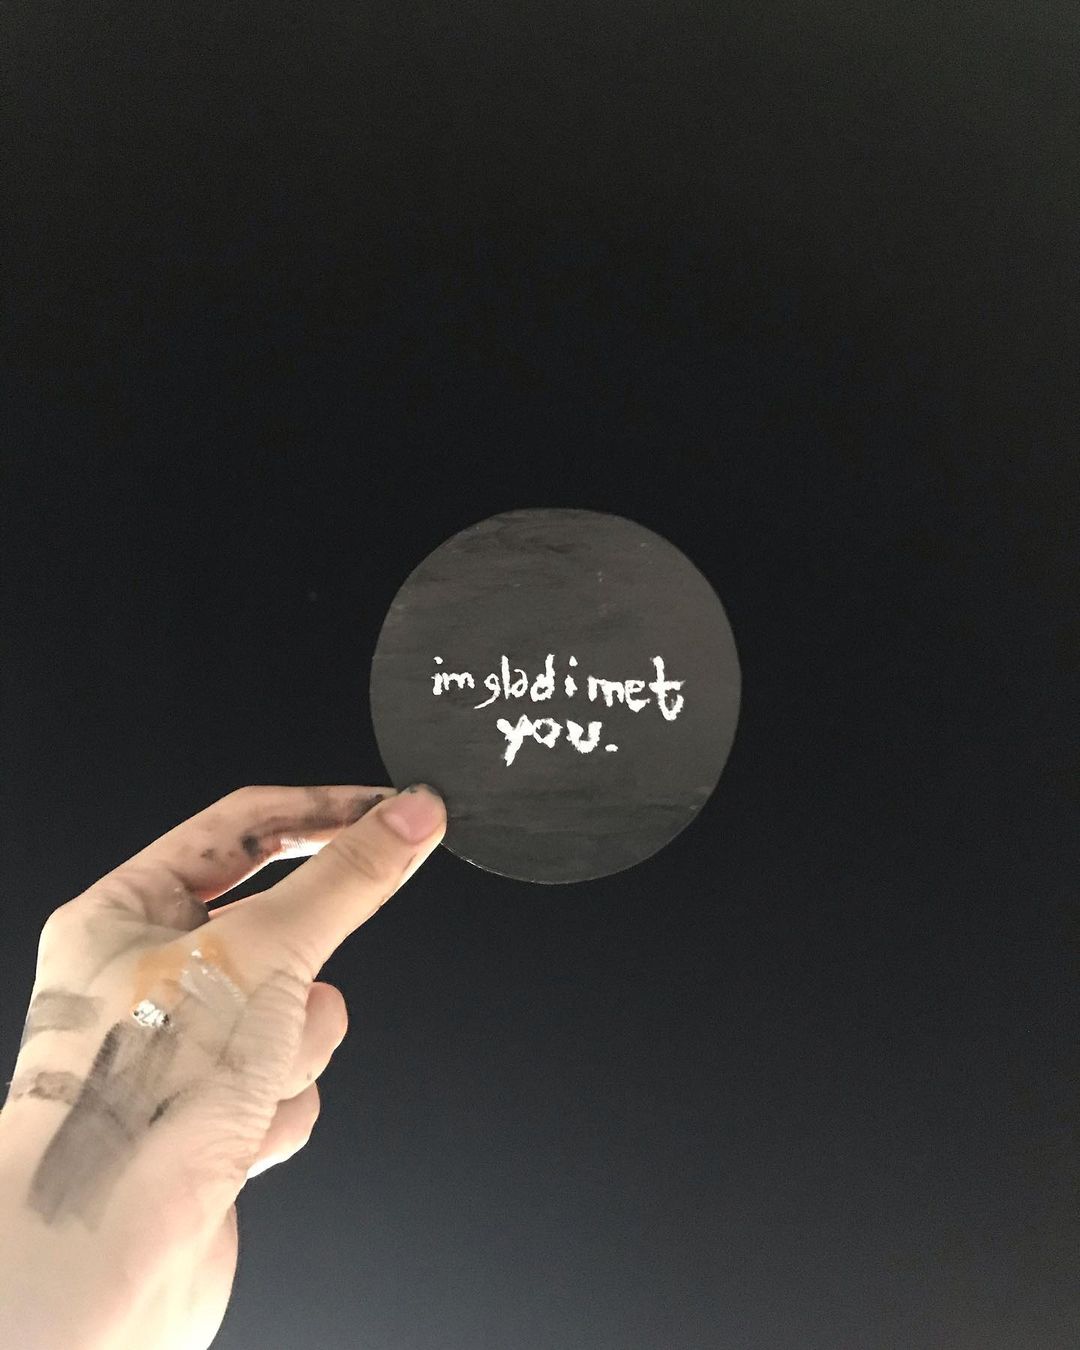 im glad i met
you.